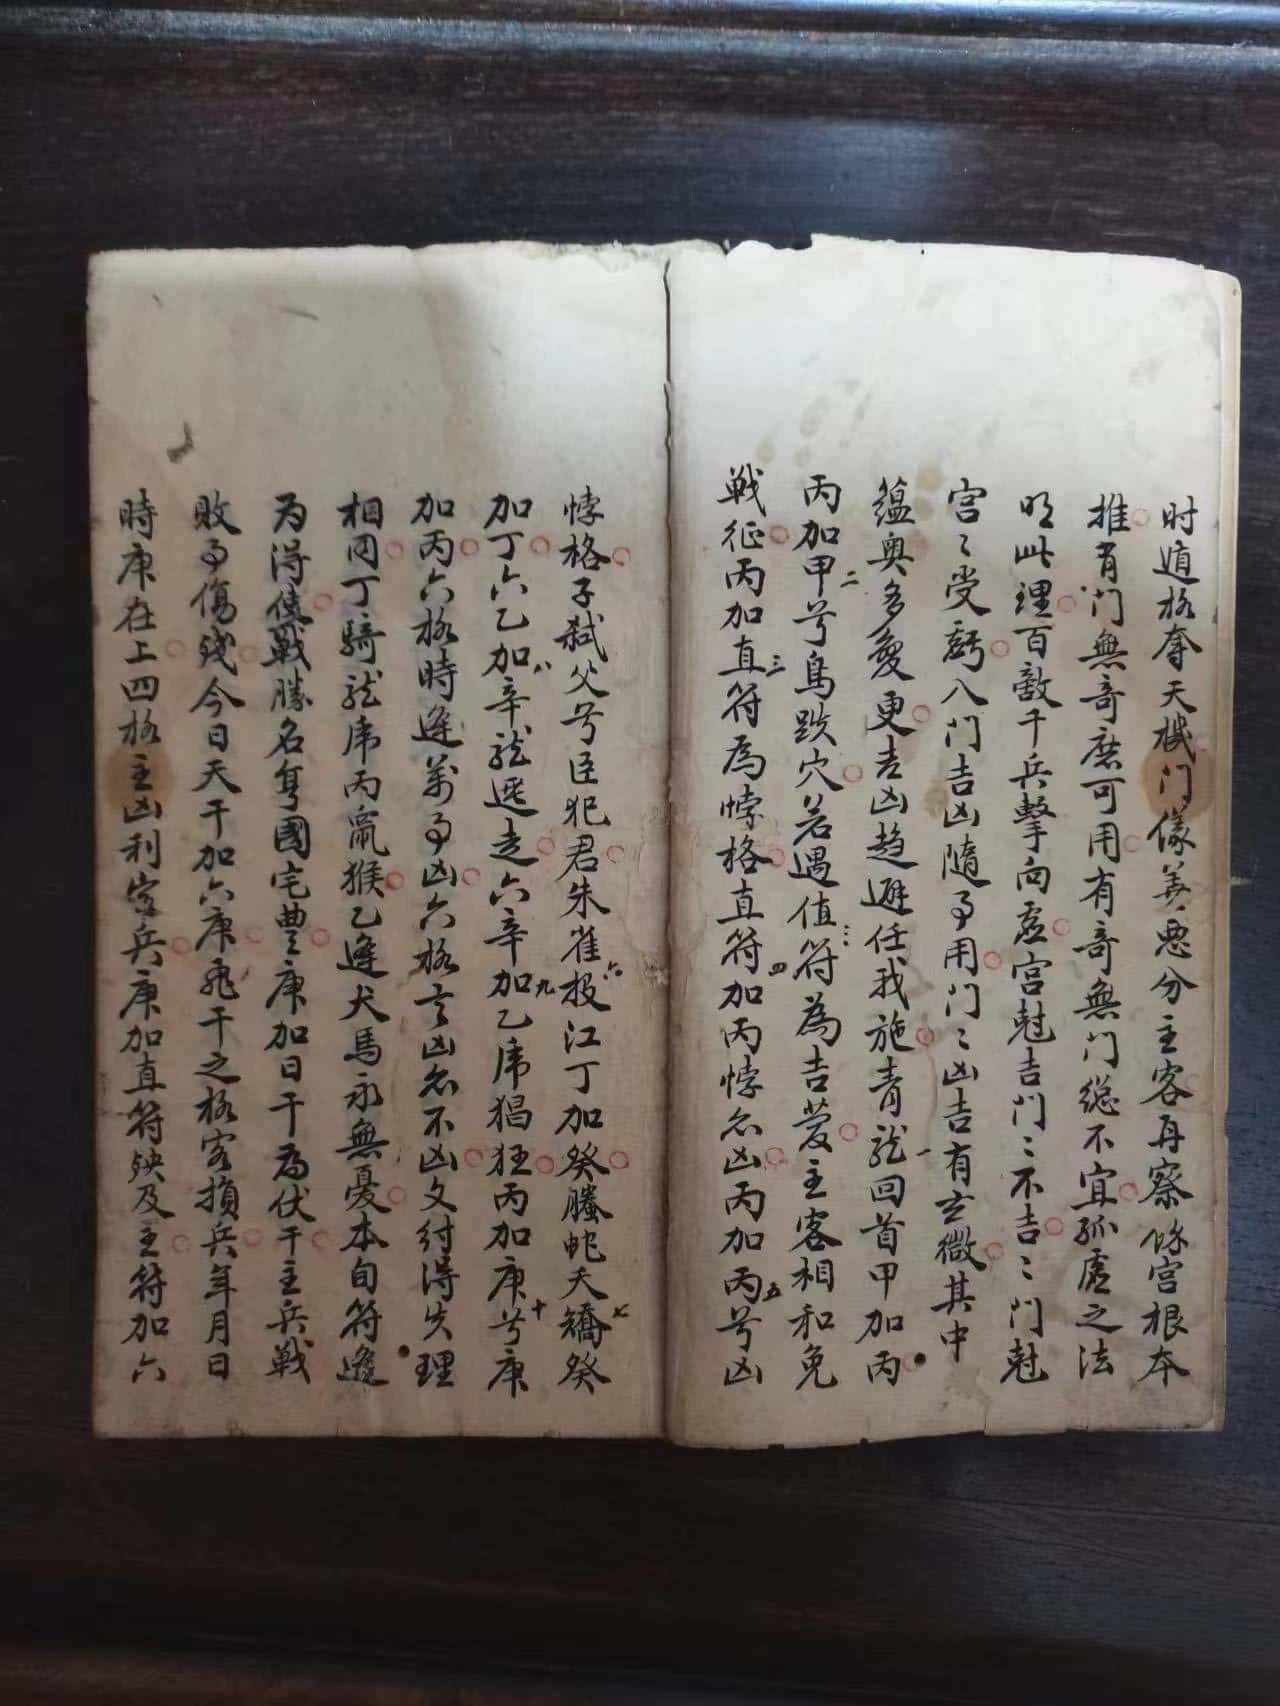 时遁格奪天機门儀善惡分主客再察你宫根本
推有门無奇庶可用有奇無门總不宜孤虛之法
明此理百敵千兵擊向虛宫尅吉门〻不吉〻门尅
宫〻受虧八门吉凶隨事用门〻凶吉有玄微其中
蘊奥多變更吉凶趋避任我施青龙回首甲加丙一
丙加甲兮鳥跌穴二若遇值符為吉荣主客相和免
戦征丙加直符三為悖格直符加丙四悖名凶丙加丙兮凶五
悖格子弑父兮臣犯君朱雀投江六丁加癸螣蛇夭矯七癸
加丁六乙加辛八龙逃走六辛加乙九虎猖狂丙加庚兮十庚
加丙六格時逢萬事凶六格云凶名不凶文付得失理
相同丁騎龙虎丙鼠猴乙逢犬馬永無憂本旬符遶
为得使戰勝名身國宅豊庚加日干為伏干主兵戦
敗事傷殘今日天干加六庚飛干之格客損兵年月日
時庚在上四格主凶利客兵庚加直符殃及主符加六